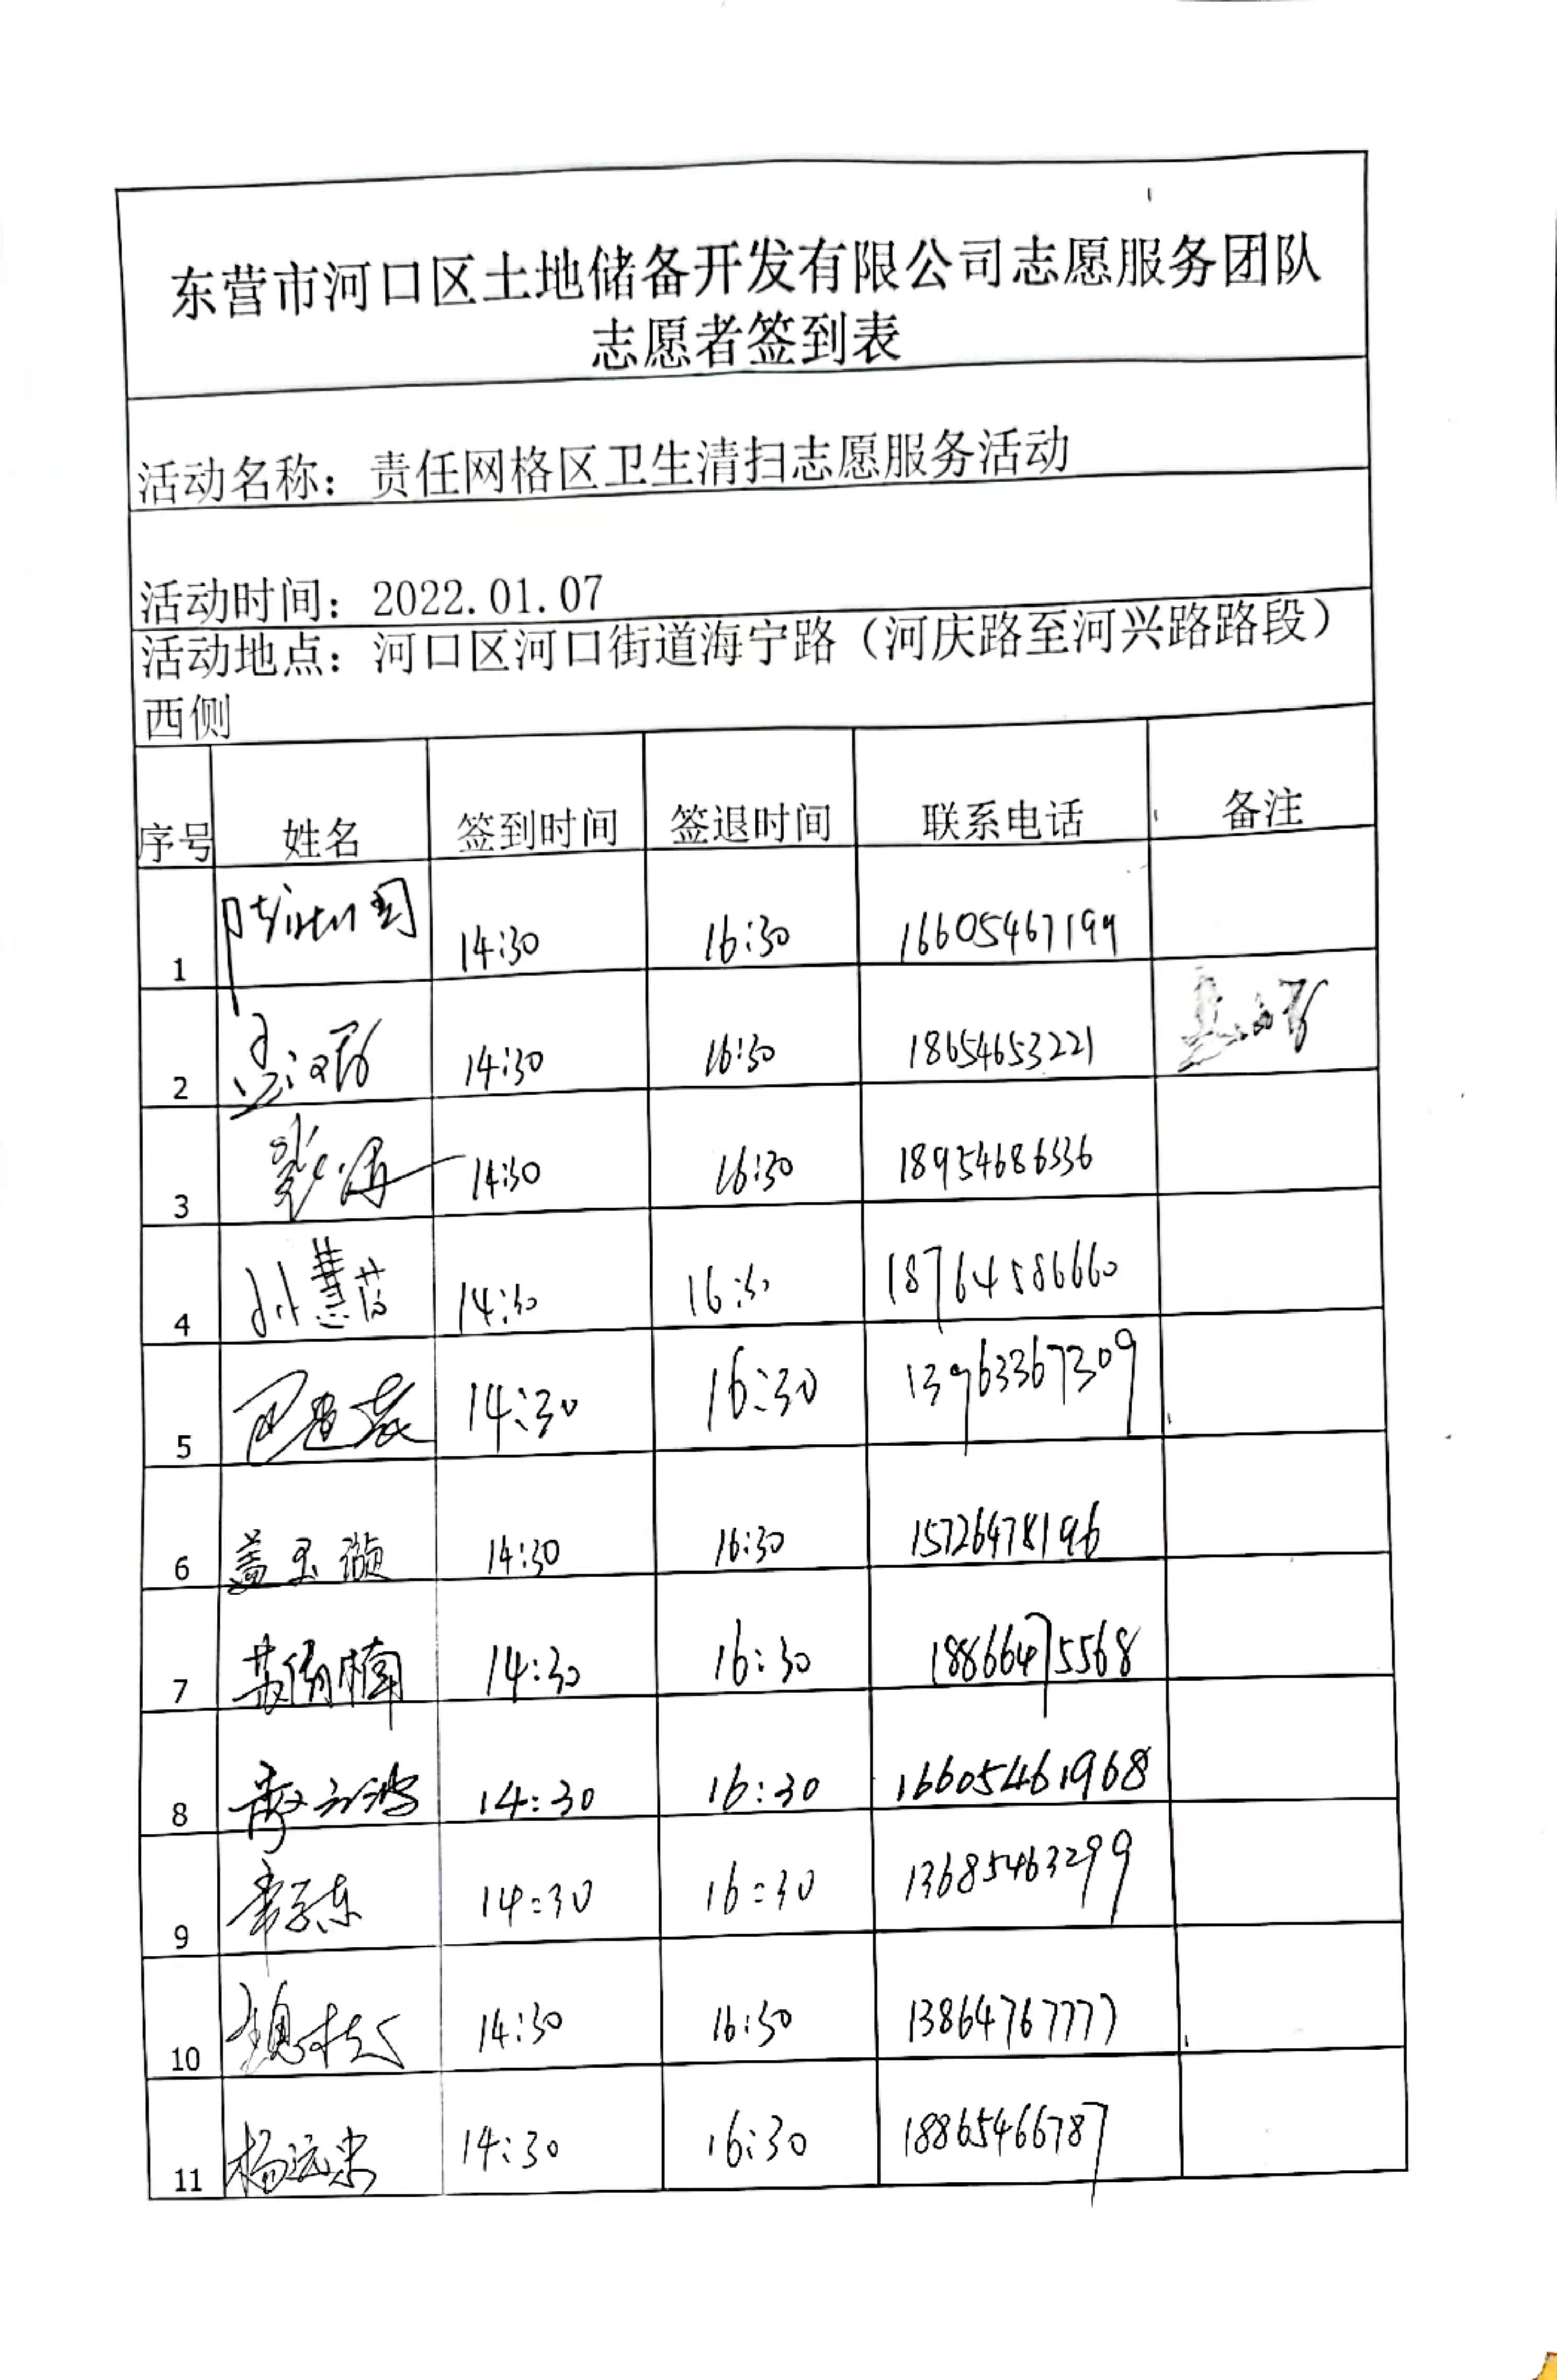 东营市河口区土地储备开发有限公司志愿服务团队
志愿者签到表
活动名称：责任网格区卫生清扫志愿服务活动
活动时间：2022.01.07
活动地点：河口区河口街道海宁路（河庆路至河兴路路段）
西侧
序号 姓名 签到时间 签退时间 联系电话 备注
1 14:30 16:30 16605467199
2 14:30 16:30 18654653221
3 14:30 16:30 18954686336
4 14:30 16:30 18764586660
5 14:30 16:30 13963367309
6 盖玉 14:30 16:30 15726478196
7 14:30 16:30 18866475568
8 14:30 16:30 16605461968
9 14:30 16:30 13685463299
10 14:30 16:30 13864767777
11 杨远忠 14:30 16:30 18865466787